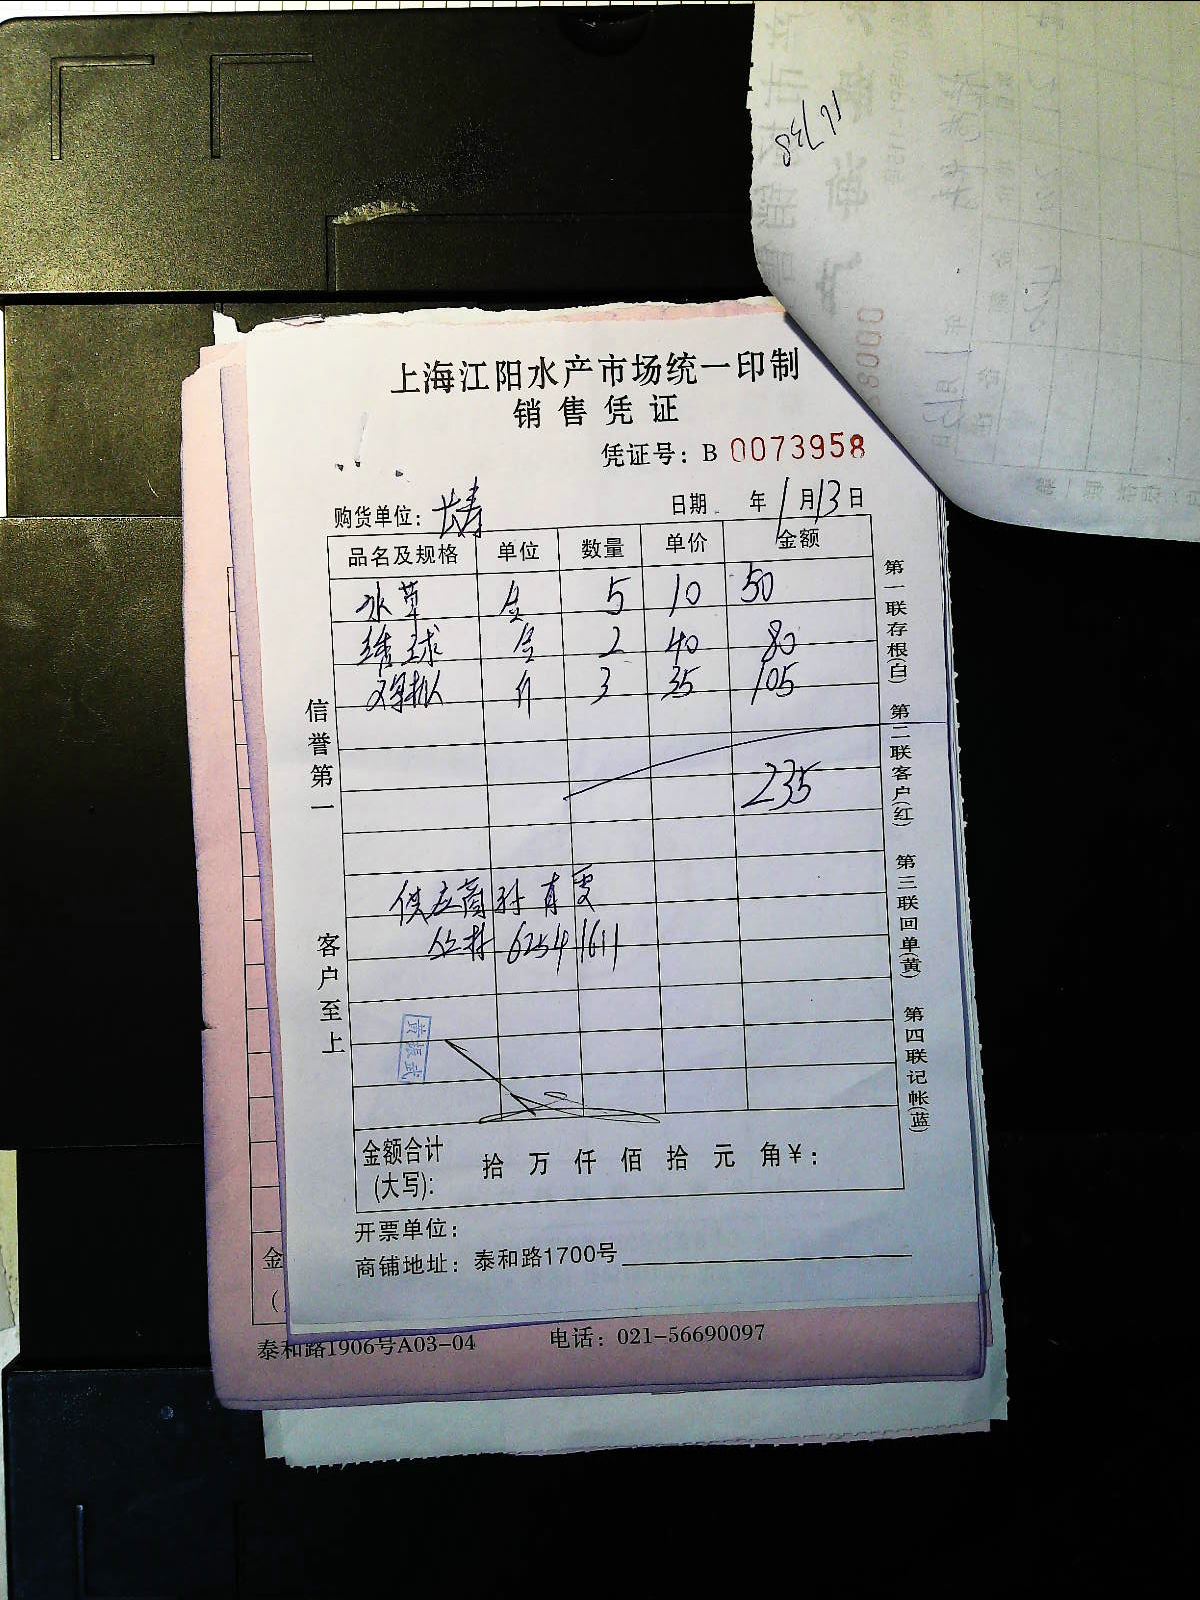 上海江阳水产市场统一印制
销售凭证
凭证号：B 0073958
购货单位：长寿 日期 年1月13日
品名及规格 单位 数量 单价 金额
水草 盒 5 10 50
球 盒 2 40 80
斤 3 35 105
235
供应商孙
62541611
黄振武
金额合计(大写): 拾 万 仟 佰 拾 元 角￥:
开票单位：
商铺地址：泰和路1700号
信誉第一
客户至上
第一联存根(白) 第二联客户(红) 第三联回单(黄) 第四联记帐(蓝)
泰和路1906号A03-04 电话：021-56690097